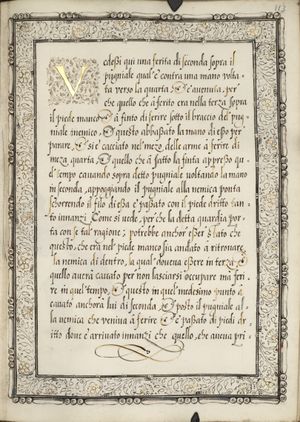 113
Vedesi qui una ferita di seconda sopra il
pugniale qual'è contra una mano volta-
ta verso la quarta et è avenuta, per-
che quello che à ferito era nella terza sopra
il piede manco et à finto di ferire sotto il braccio del pu-
niale inemico, et questo abbassato la mano di esso per
parare, et si è cacciato nel mezo delle arme à ferire di
meza quarta et quello che à fatto la finta appresso quel
tempo cavando sopra detto pugniale voltando la mano
in seconda, appoggiando il pugniale alla nemica ponta
scorrendo il filo di essa è passato con il piede dritto tan-
to innanzi. Come si vede, per che la detta guardia por-
ta con se tal ragione; potrebbe anchor esser stato che
questo, che era nel piede manco sia andato à ritrovare
la nemica di dentro, la qual doveva essere in terza et
quello averà cavato per non lasciarsi occupare ma feri-
re in quel tempo, et questo in quel medesimo punto à
cavato anchora lui di seconda et posto il pugniale al-
la nemica che veniva à ferire et è passato di piedi di
ritto dove è arrivato innanzi che quello, che aveva pri-